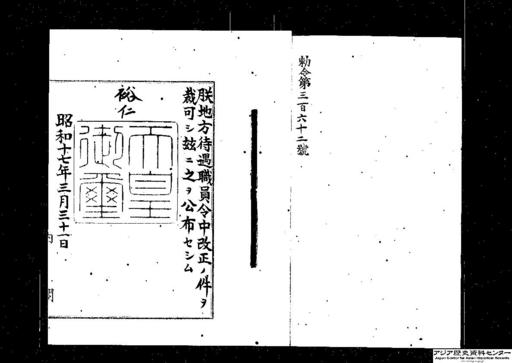 勅令第三百六十二號
朕地方待遇職員令中改正ノ件ヲ
裁可シ玆ニ之ヲ公布セシム
裕仁
天皇御璽
昭和十七年三月三十一日
アジア歴史資料センター
Japan Center for Asian Historical Records